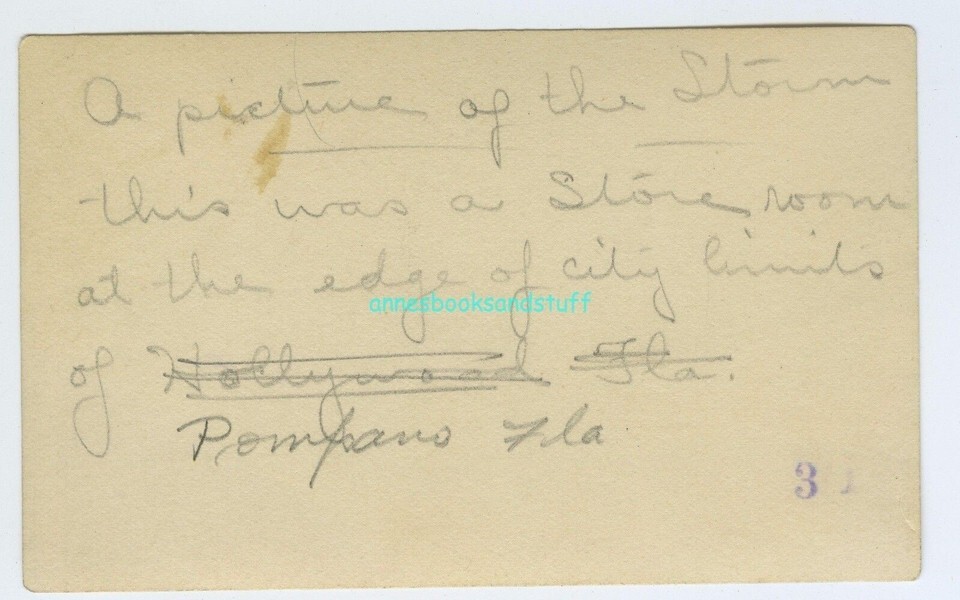 A picture of the Storm
this was a Store room
at the edge of city limits
annesbooksandstuff
of Hollywood Fla.
Pompano Fla
3